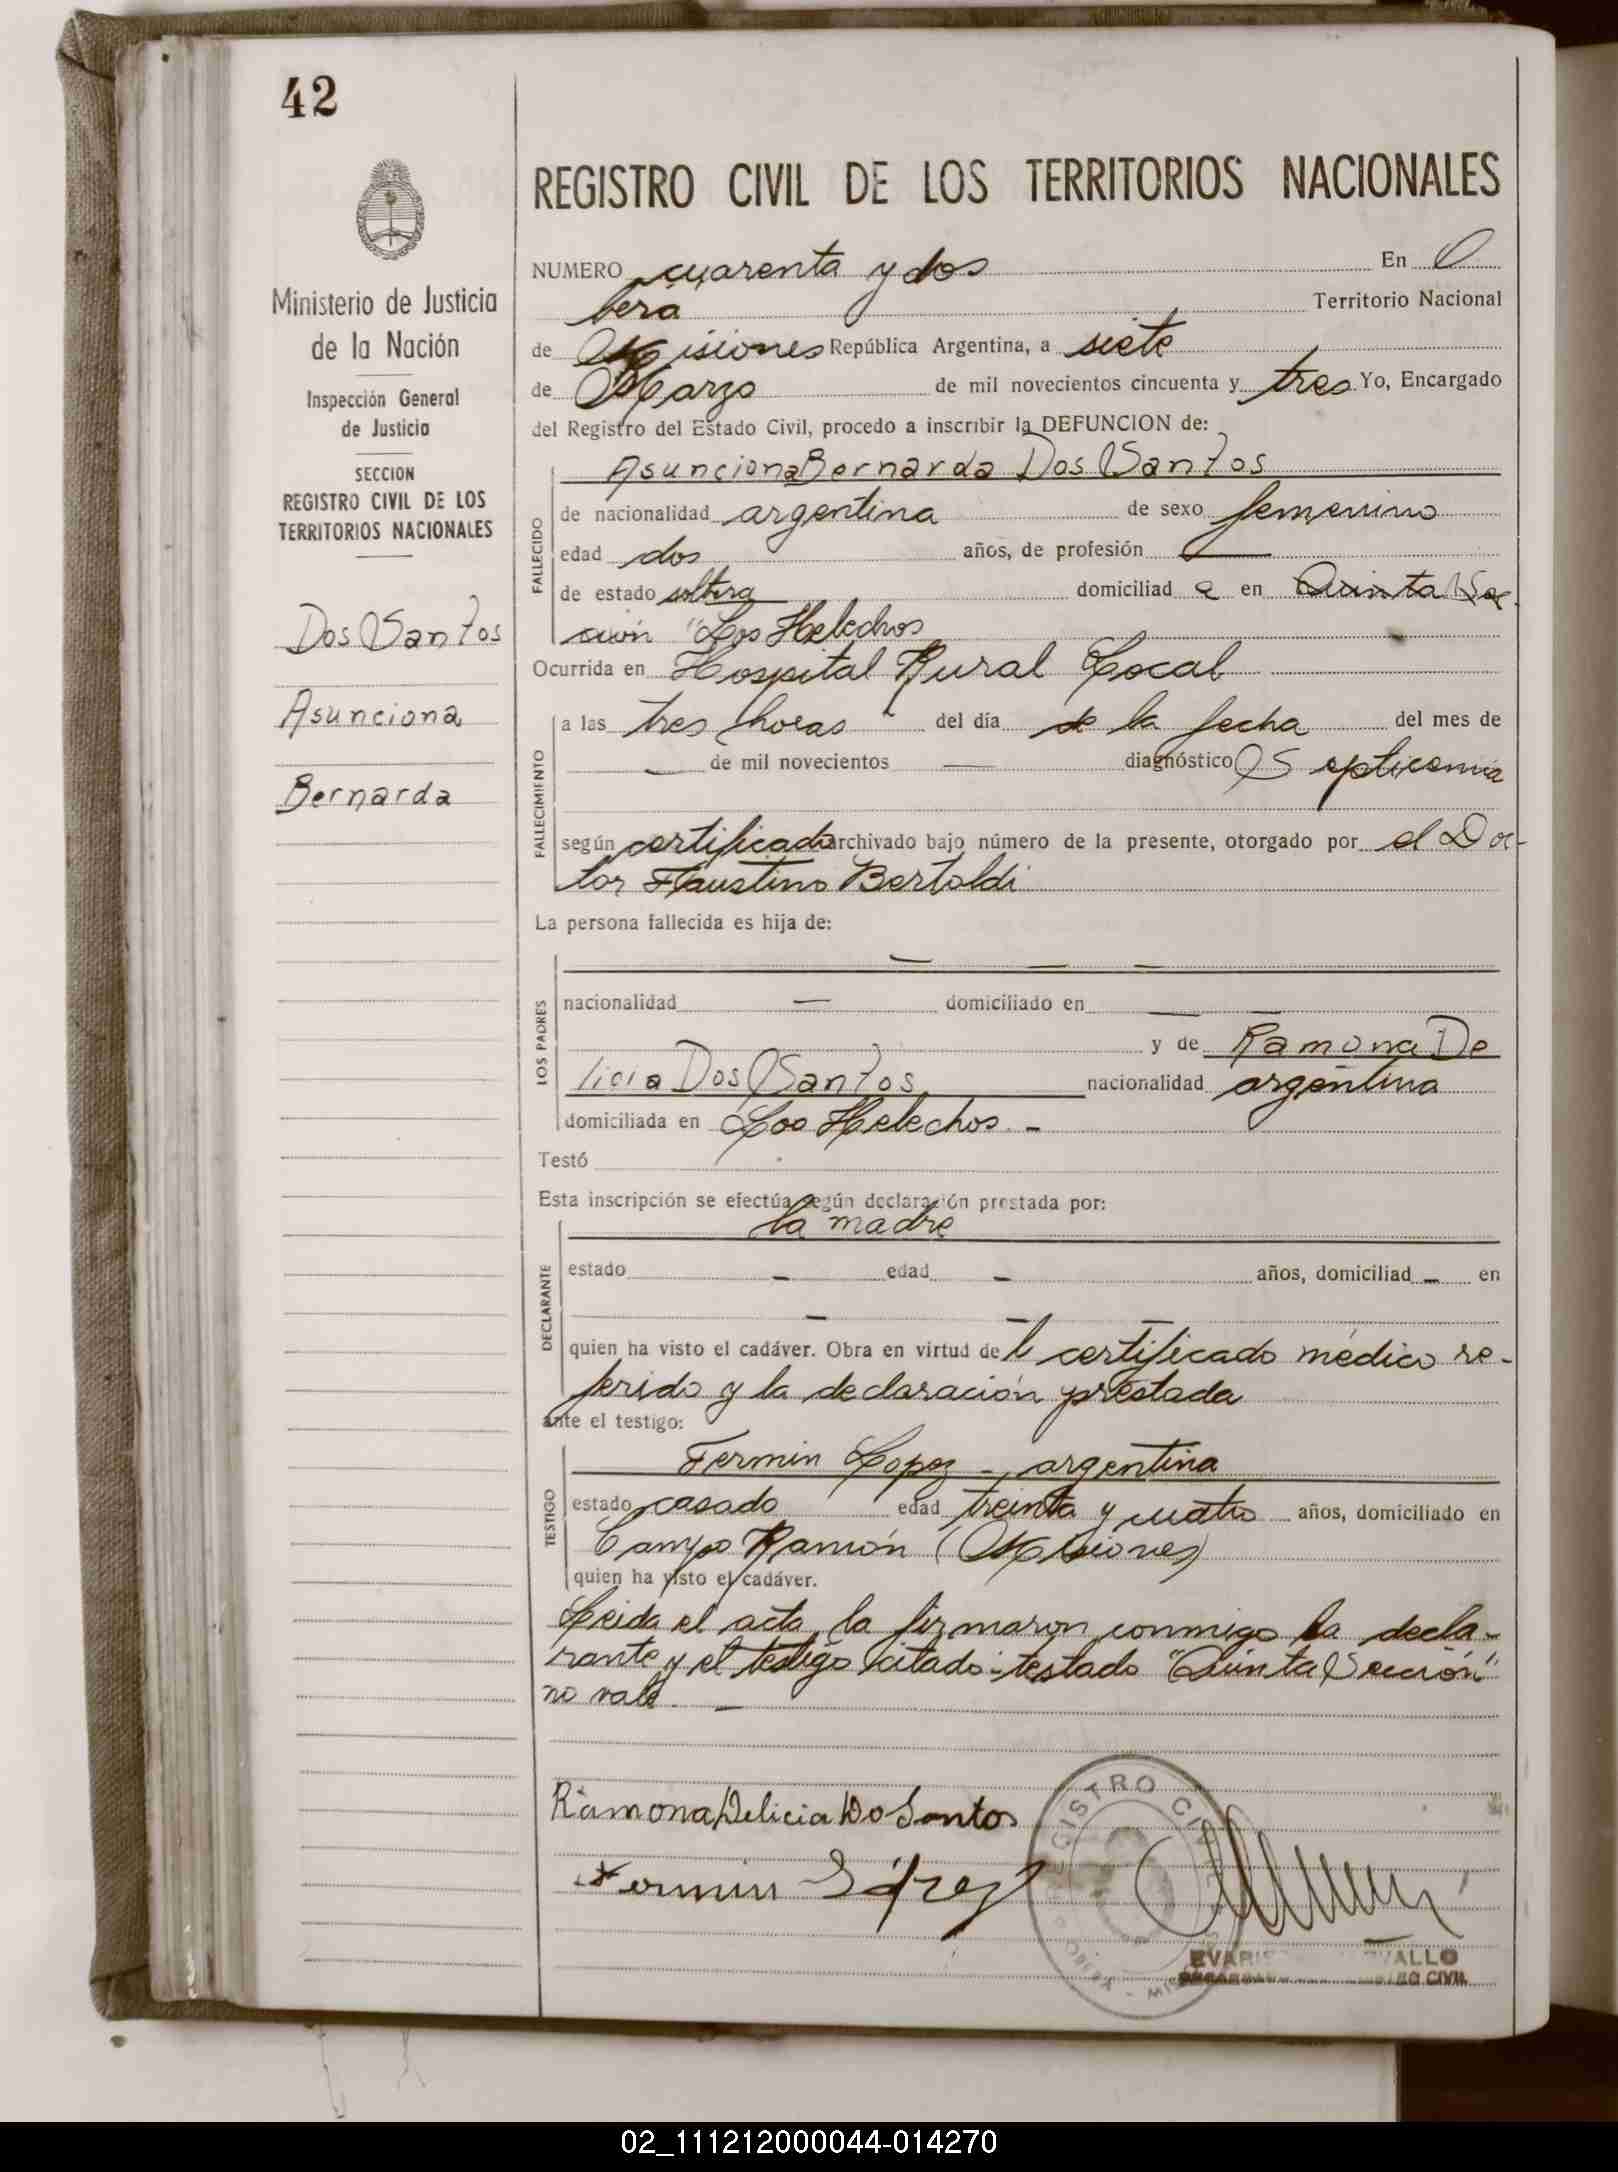 42
Ministerio de Justicia
de la Nación
Inspección General
de Justicia
SECCION
REGISTRO CIVIL DE LOS
TERRITORIOS NACIONALES
Dos Santos
Asunciona
Bernarda
REGISTRO CIVIL DE LOS TERRITORIOS NACIONALES
NUMERO cuarenta y dos En O
berá Territorio Nacional
de Misiones República Argentina, a siete
de Marzo de mil novecientos cincuenta y tres Yo, Encargado
del Registro del Estado Civil, procedo a inscribir la DEFUNCION de:
Asunciona Bernarda Dos Santos
FALLECIDO
de nacionalidad argentina de sexo femenino
edad dos años, de profesión —
de estado soltera domiciliad a en Quinta Sec-
ción "Los Helechos
Ocurrida en Hospital Rural Local
FALLECIMIENTO
a las tres horas del día de la fecha del mes de
— de mil novecientos — diagnóstico Septicemia
según certificado archivado bajo número de la presente, otorgado por el Doc-
tor Faustino Bertoldi
La persona fallecida es hija de:
— — —
LOS PADRES
nacionalidad — domiciliado en — —
y de Ramona De
licia Dos Santos nacionalidad argentina
domiciliada en Los Helechos. -
Testó
Esta inscripción se efectúa según declaración prestada por:
la madre
DECLARANTE
estado - edad - años, domiciliad - en
- - -
quien ha visto el cadáver. Obra en virtud de l certificado médico re-
ferido y la declaración prestada
ante el testigo:
Fermin Lopez - argentina
TESTIGO
estado casado edad treinta y cuatro años, domiciliado en
Campo Ramón (Misiones)
quien ha visto el cadáver.
Leida el acta, la firmaron conmigo la decla-
rante y el testigo citado: testado "Quinta Sección"
no vale. —
Ramona Delicia Do Santos
Fermin López
REGISTRO CIVIL
EVARIS VALLO
CIVIL
02_111212000044-014270